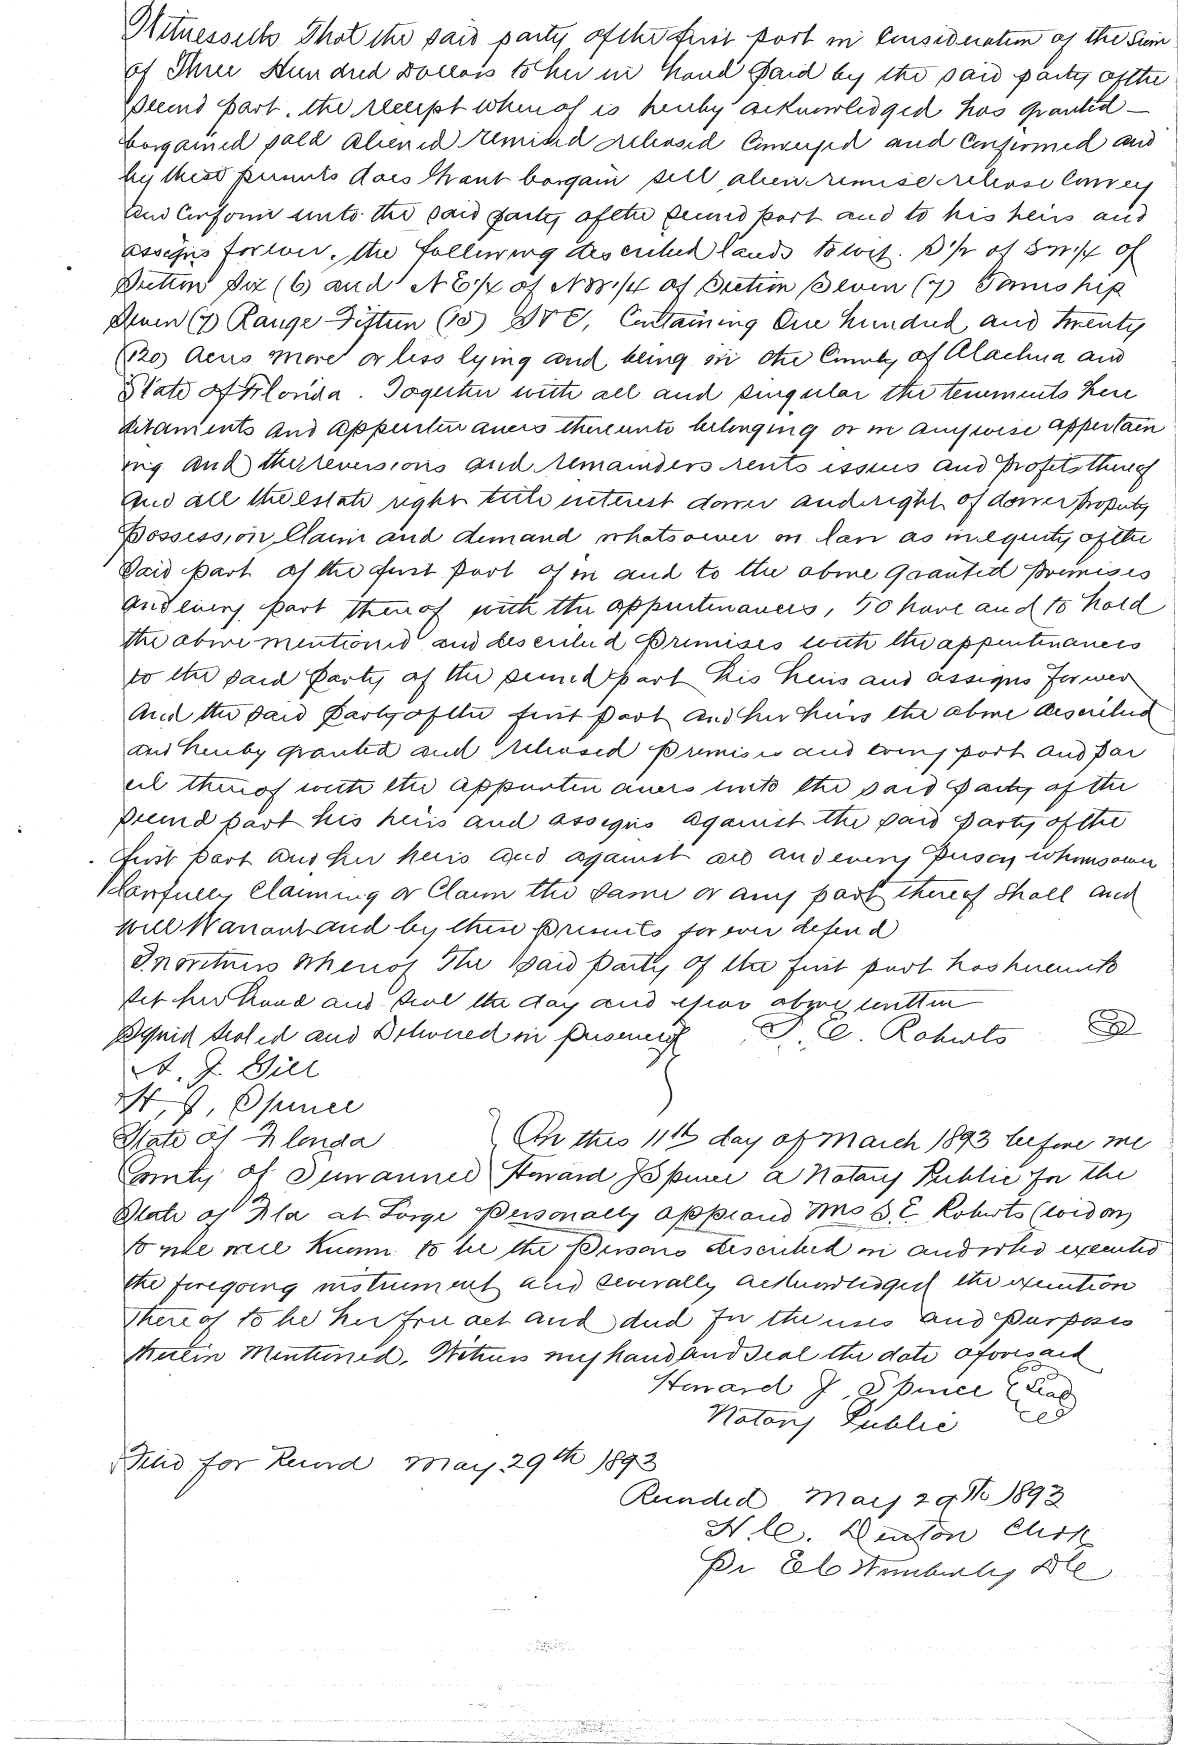 Witnesseth That the said party of the first part in Consideration of the Sum
of Three Hundred Dollars to her in hand paid by the said party of the
Second part, the receipt whereof is hereby acknowledged has granted —
bargained sold aliened remised released Conveyed and Confirmed and
by these presents does Grant bargain sell alien remise release Convey
and Confirm unto the said party of the second part and to his heirs and
assigns forever, the following described lands towit. S 1/2 of SW 1/4 of
Section Six (6) and NE 1/4 of NW 1/4 of Section Seven (7) Township
Seven (7) Range Fifteen (15) S & E, Containing One hundred and twenty
(120) Acres more or less lying and being in the County of Alachua and
State of Florida. Together with all and singular the tenements here
ditaments and appurtenances thereunto belonging or in anywise appertain
ing and the reversions and remainders rents issues and profits thereof
and all the estate right title interest dower and right of dower property
Possession Claim and demand whatsoever in law as in equity of the
Said part of the first part of in and to the above granted premises
and every part thereof with the appurtenances, To have and to hold
the above mentioned and described premises with the appurtenances
to the said party of the second part his heirs and assigns forever
And the said party of the first part and her heirs the above described
and hereby granted and released premises and every part and par
cel thereof with the appurtenances unto the said party of the
second part his heirs and assigns against the said party of the
first part and her heirs and against all and every person whomsoever
lawfully Claiming or Claim the same or any part thereof shall and
will Warrant and by these presents forever defend
In witness whereof The said party of the first part has hereunto
set her hand and seal the day and year above written
Signed sealed and Delivered in presence of S. E. Roberts
A. J. Gill
H. J. Spence
State of Florida On this 11th day of March 1893 before me
County of Suwannee Howard J Spence a Notary Public for the
State of Fla at Large personally appeard Mrs S. E. Roberts (widow)
to me well Known to be the Persons described in and who executed
the foregoing instrument and severally acknowledged the execution
thereof to be her free act and deed for the uses and purposes
therein Mentioned. Witness my hand and Seal the date aforesaid
Howard J. Spence Seal
Notary Public
Filed for Record May 29th 1893
Recorded May 29th 1893
H. C. Denton Clerk
Pr E C Wimberly DC